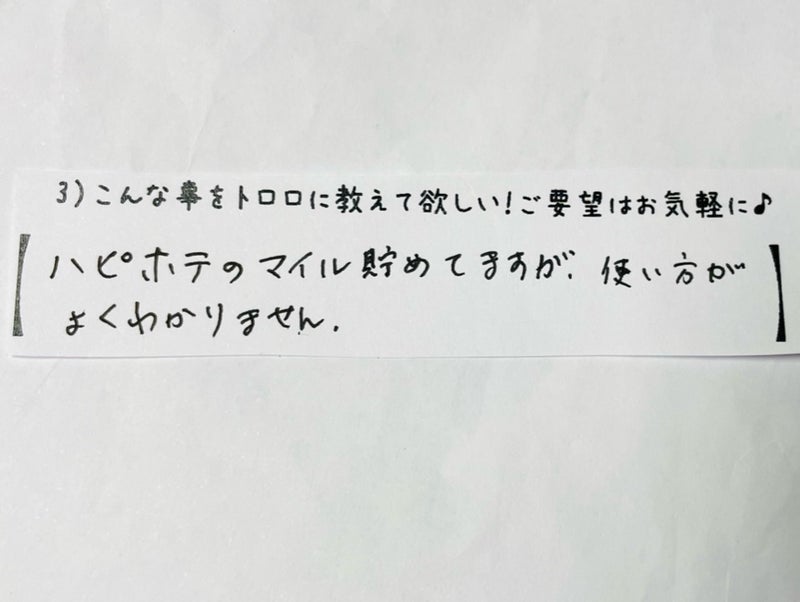 3)こんな事をトロロに教えて欲しい!ご要望はお気軽に♪
【ハピホテのマイル貯めてますが、使い方が
よくわかりません。】